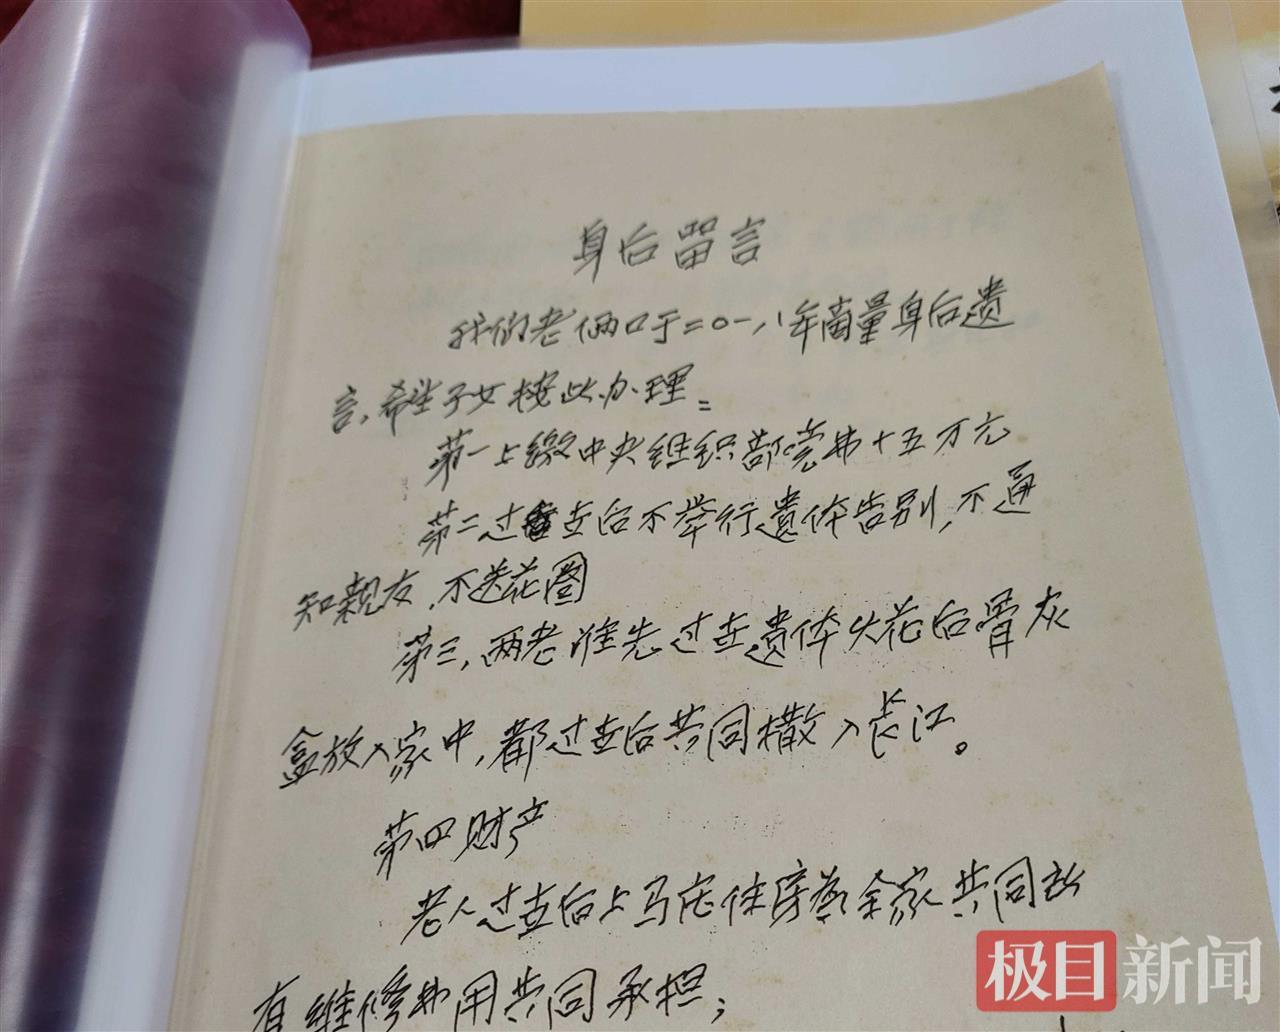 身后留言
我们老俩口于二0一八年商量身后遗
言,希望子女按此办理:
第一上缴中央组织部党费十五万元
第二过世后不举行遗体告别,不通
知亲友,不送花圈
第三,两老谁先过世遗体火花后骨灰
盒放入家中,都过世后共同撒入长江。
第四财产
老人过世后上马庄住房为全家共同所
有维修费用共同承担;
极目新闻